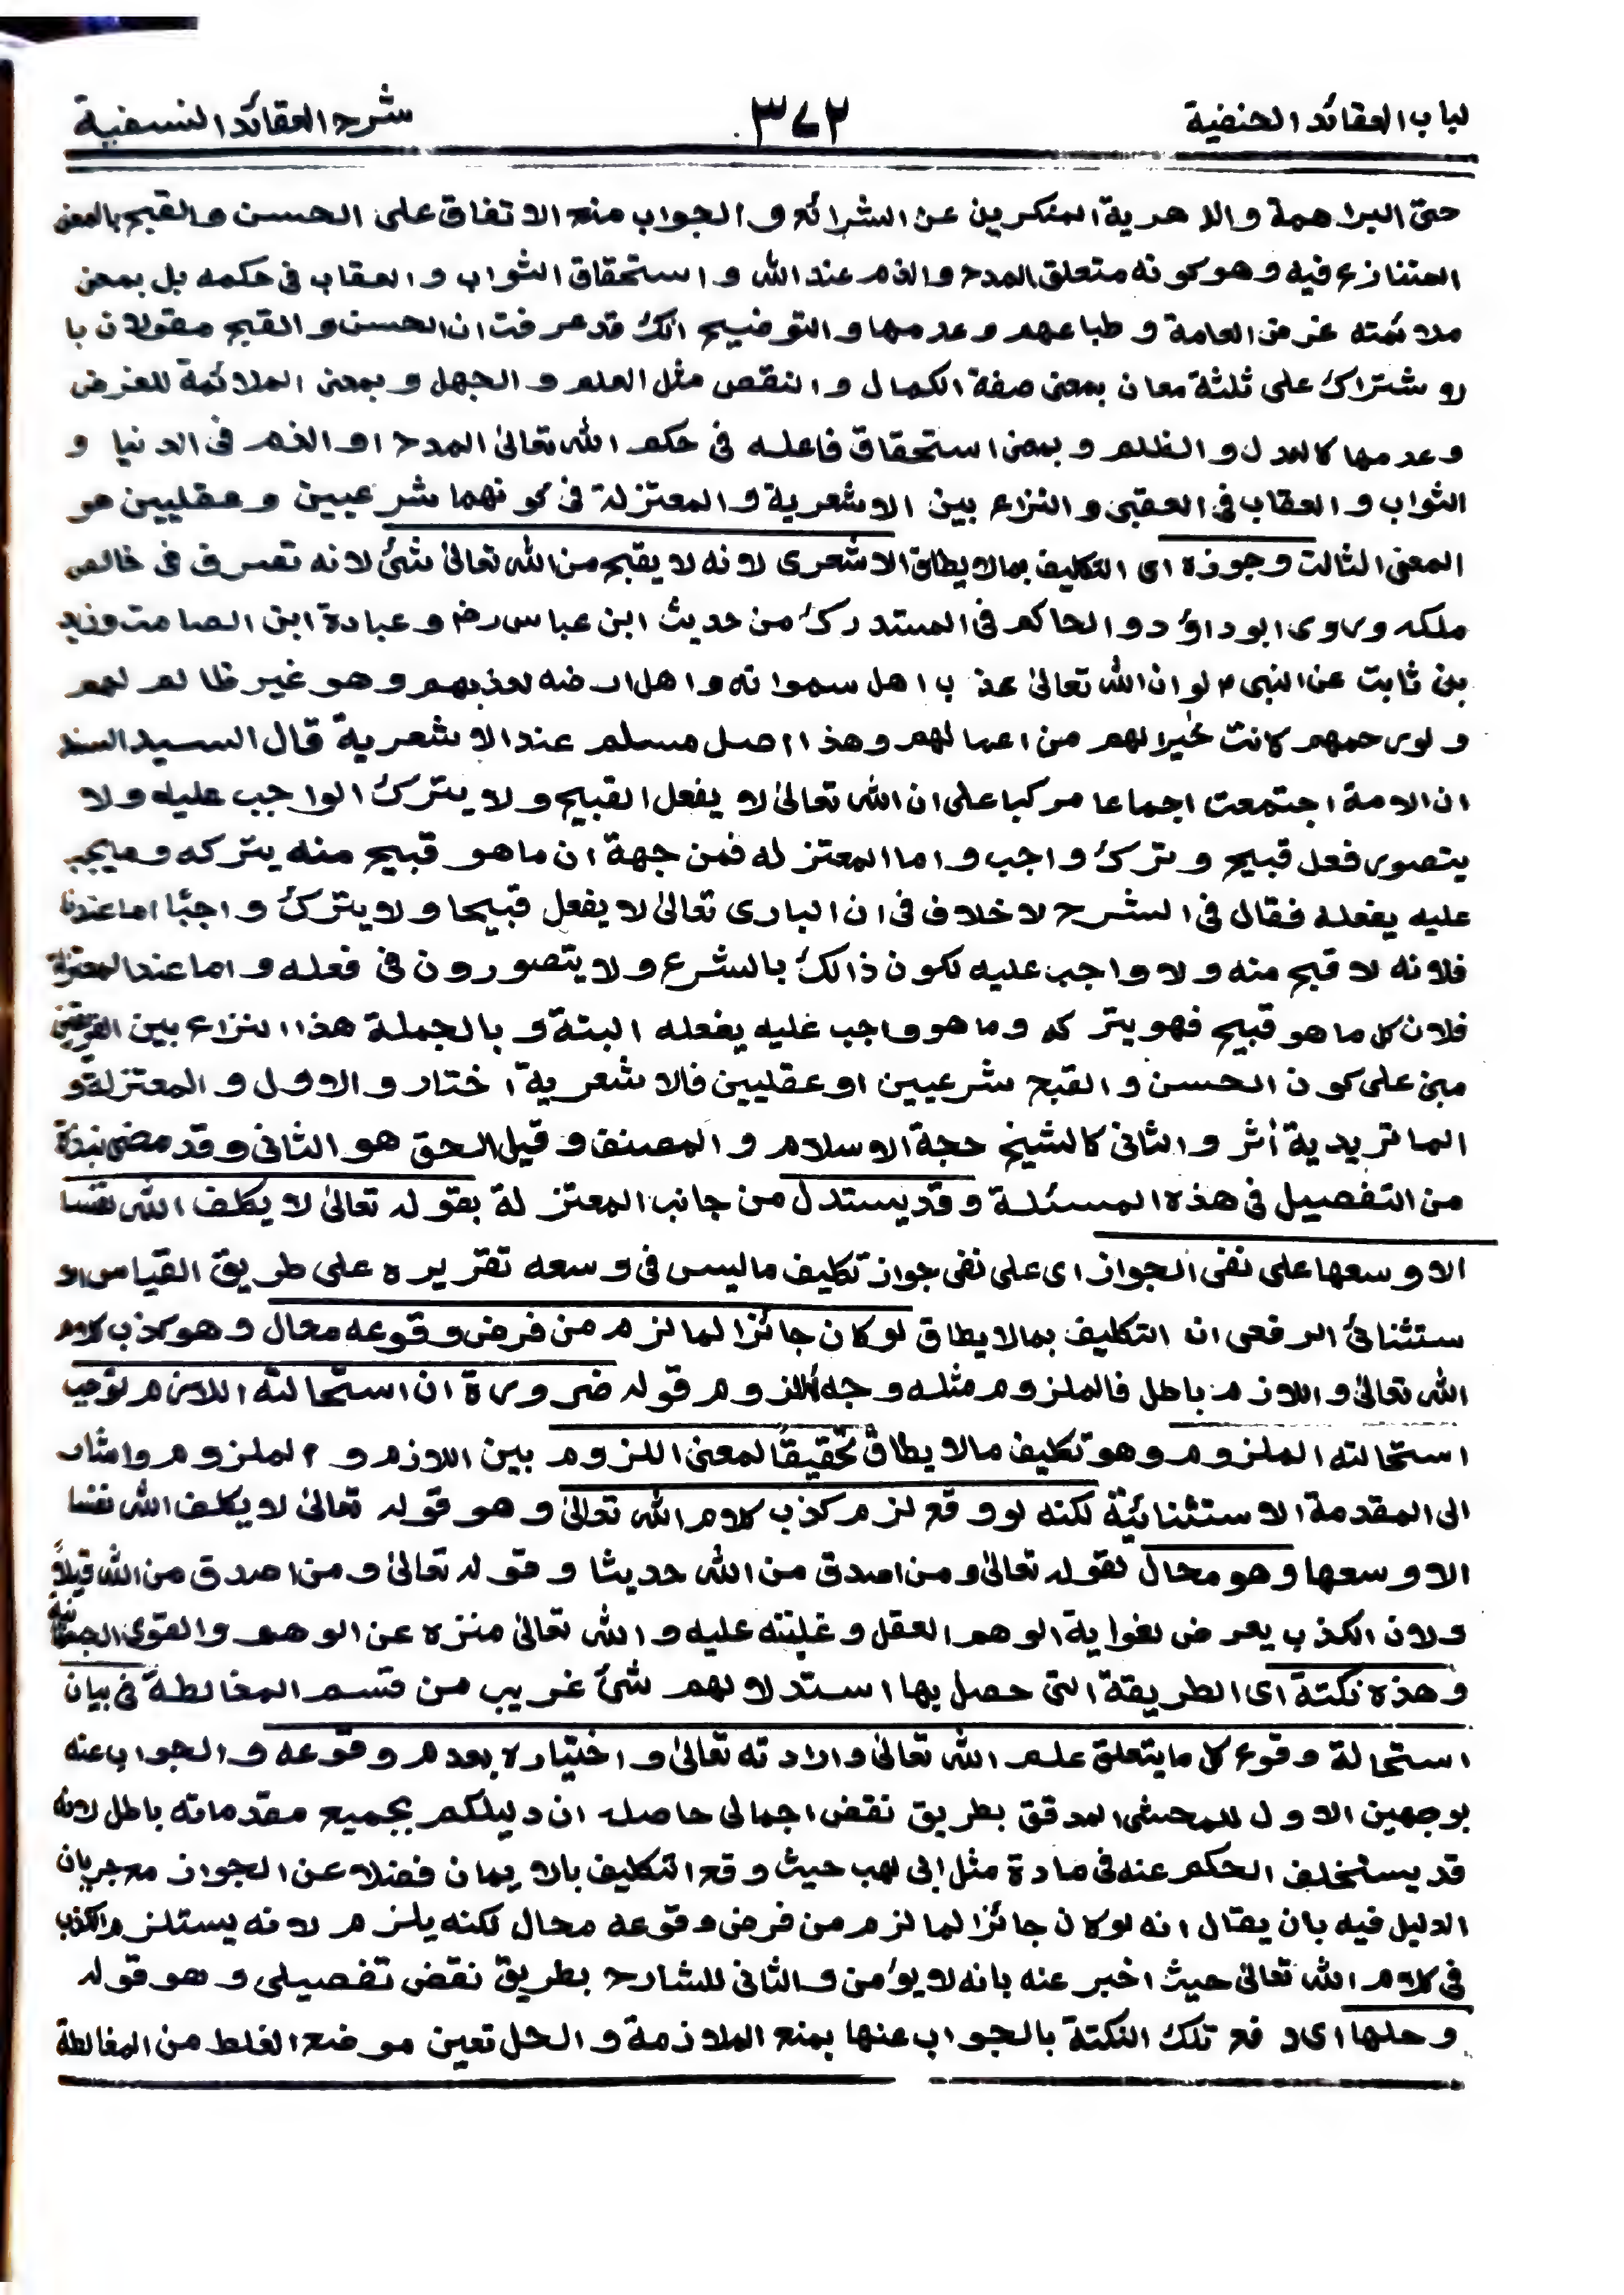 لباب العقائد الحنفية ٣٧٢ شرح العقائد النسفية
حتى البراهمة والدهرية المنكرين عن الشرائع والجواب منع الاتفاق على الحسن والقبح بالمعنى
المتنازع فيه وهو كونه متعلق المدح والذم عند الله واستحقاق الثواب والعقاب فى حكمه بل بمعنى
ملائمته غرض العامة وطباعهم وعدمها والتوضيح انك قد عرفت ان الحسن والقبح مقولان با
لاشتراك على ثلثة معان بمعنى صفة الكمال والنقص مثل العلم والجهل وبمعنى الملائمة للغرض
وعدمها كالعدل والظلم وبمعنى استحقاق فاعله فى حكم الله تعالىٰ المدح او الذم فى الدنيا و
الثواب والعقاب فى العقبى والنزاع بين الاشعرية والمعتزلة فى كونهما شرعيين وعقليين هو
المعنى الثالث وجوزه اى التكليف بما لا يطاق الاشعرى لانه لا يقبح من الله تعالىٰ شئ لانه تصرف فى خالص
ملكه وروى ابوداؤد والحاكم فى المستدرك من حديث ابن عباس رض وعبادة ابن الصامت وزيد
بن ثابت عن النبى م لو ان الله تعالىٰ عذب اهل سمواته واهل ارضه لعذبهم وهو غير ظالم لهم
ولو رحمهم كانت خيرا لهم من اعمالهم وهذا اصل مسلم عند الاشعرية قال السيد السند
ان الامة اجتمعت اجماعا مركبا على ان الله تعالىٰ لا يفعل القبيح ولا يترك الواجب عليه ولا
يتصور فعل قبيح وترك واجب واما المعتزله فمن جهة ان ما هو قبيح منه يتركه وما يجب
عليه يفعله فقال فى الشرح لا خلاف فى ان البارى تعالىٰ لا يفعل قبيحا ولا يترك واجبًا اما عندنا
فلانه لا قبح منه ولا واجب عليه لكون ذالك بالشرع ولا يتصورون فى فعله واما عند المعتزلة
فلان كل ما هو قبيح فهو يتركه وما هو واجب عليه يفعله البتة وبالجملة هذا النزاع بين الفريقين
مبنى على كون الحسن والقبح شرعيين او عقليين فالاشعرية اختار والاول والمعتزلة و
الماتريدية أثر والثانى كالشيخ حجة الاسلام والمصنف وقيل الحق هو الثانى وقد مضى نبذة
من التفصيل فى هذه المسئلة وقد يستدل من جانب المعتزلة بقوله تعالىٰ لا يكلف الله نفسا
الا وسعها على نفى الجواز اى على نفى جواز تكليف ما ليس فى وسعه تقريره على طريق القياس الا
ستثنائى الرفعى ان التكليف بما لا يطاق لو كان جائزا لما لزم من فرض وقوعه محال وهو كذب كلام
الله تعالىٰ واللازم باطل فالملزوم مثله وجه اللزوم قوله ضرورة ان استحالة اللازم توجب
استحالته الملزوم وهو تكليف ما لا يطاق تحقيقًا لمعنى اللزوم بين اللازم والملزوم واشار
الى المقدمة الاستثنائية لكنه لو وقع لزم كذب كلام الله تعالىٰ وهو قوله تعالىٰ لا يكلف الله نفسا
الا وسعها وهو محال لقوله تعالىٰ ومن اصدق من الله حديثا وقوله تعالىٰ ومن اصدق من الله قيلاً
ولان الكذب يعرض لغواية الوهم العقل وغلبته عليه والله تعالىٰ منزه عن الوهم والقوى الجسمانية
وهذه نكتة اى الطريقة التى حصل بها استدلالهم شئ غريب من قسم المغالطة فى بيان
استحالة وقوع كل ما يتعلق علم الله تعالىٰ وارادته تعالىٰ واختياره بعدم وقوعه والجواب عنه
بوجهين الاول للمحشى المدقق بطريق نقض اجمالى حاصله ان دليلكم بجميع مقدماته باطل لانه
قد يستخلف الحكم عنه فى مادة مثل ابى لهب حيث وقع التكليف بالايمان فضلا عن الجواز مع جريان
الدليل فيه بان يقال انه لو كان جائزا لما لزم من فرض وقوعه محال لكنه يلزم لانه يستلزم الكذب
فى كلام الله تعالىٰ حيث اخبر عنه بانه لا يؤمن والثانى للشارح بطريق نقض تفصيلى وهو قوله
وحلها اى دفع تلك النكتة بالجواب عنها بمنع الملازمة والحل تعين موضع الغلط من المغالطة